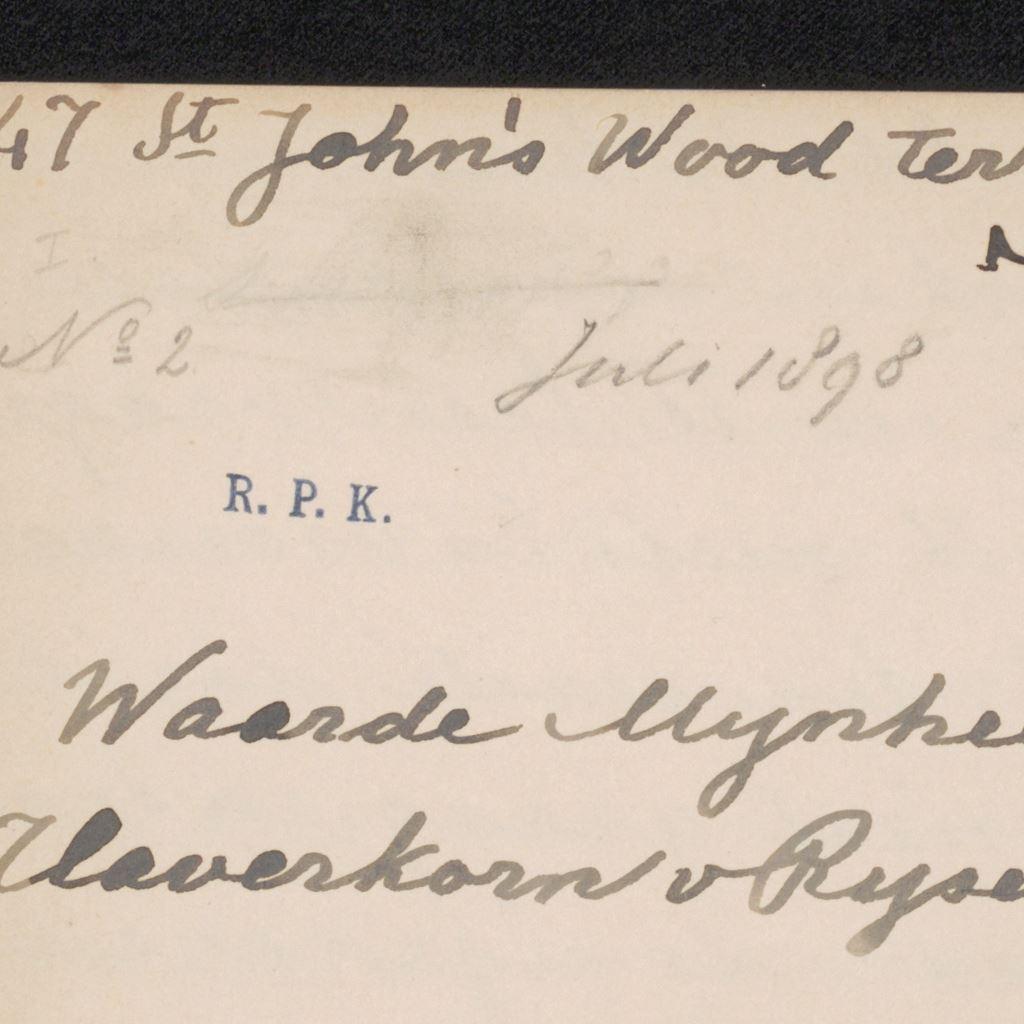 47 St John's Wood Terr
I.
No 2 Juli 1898
R. P. K.
Waarde Mynhe
Haverkorn v Ryse